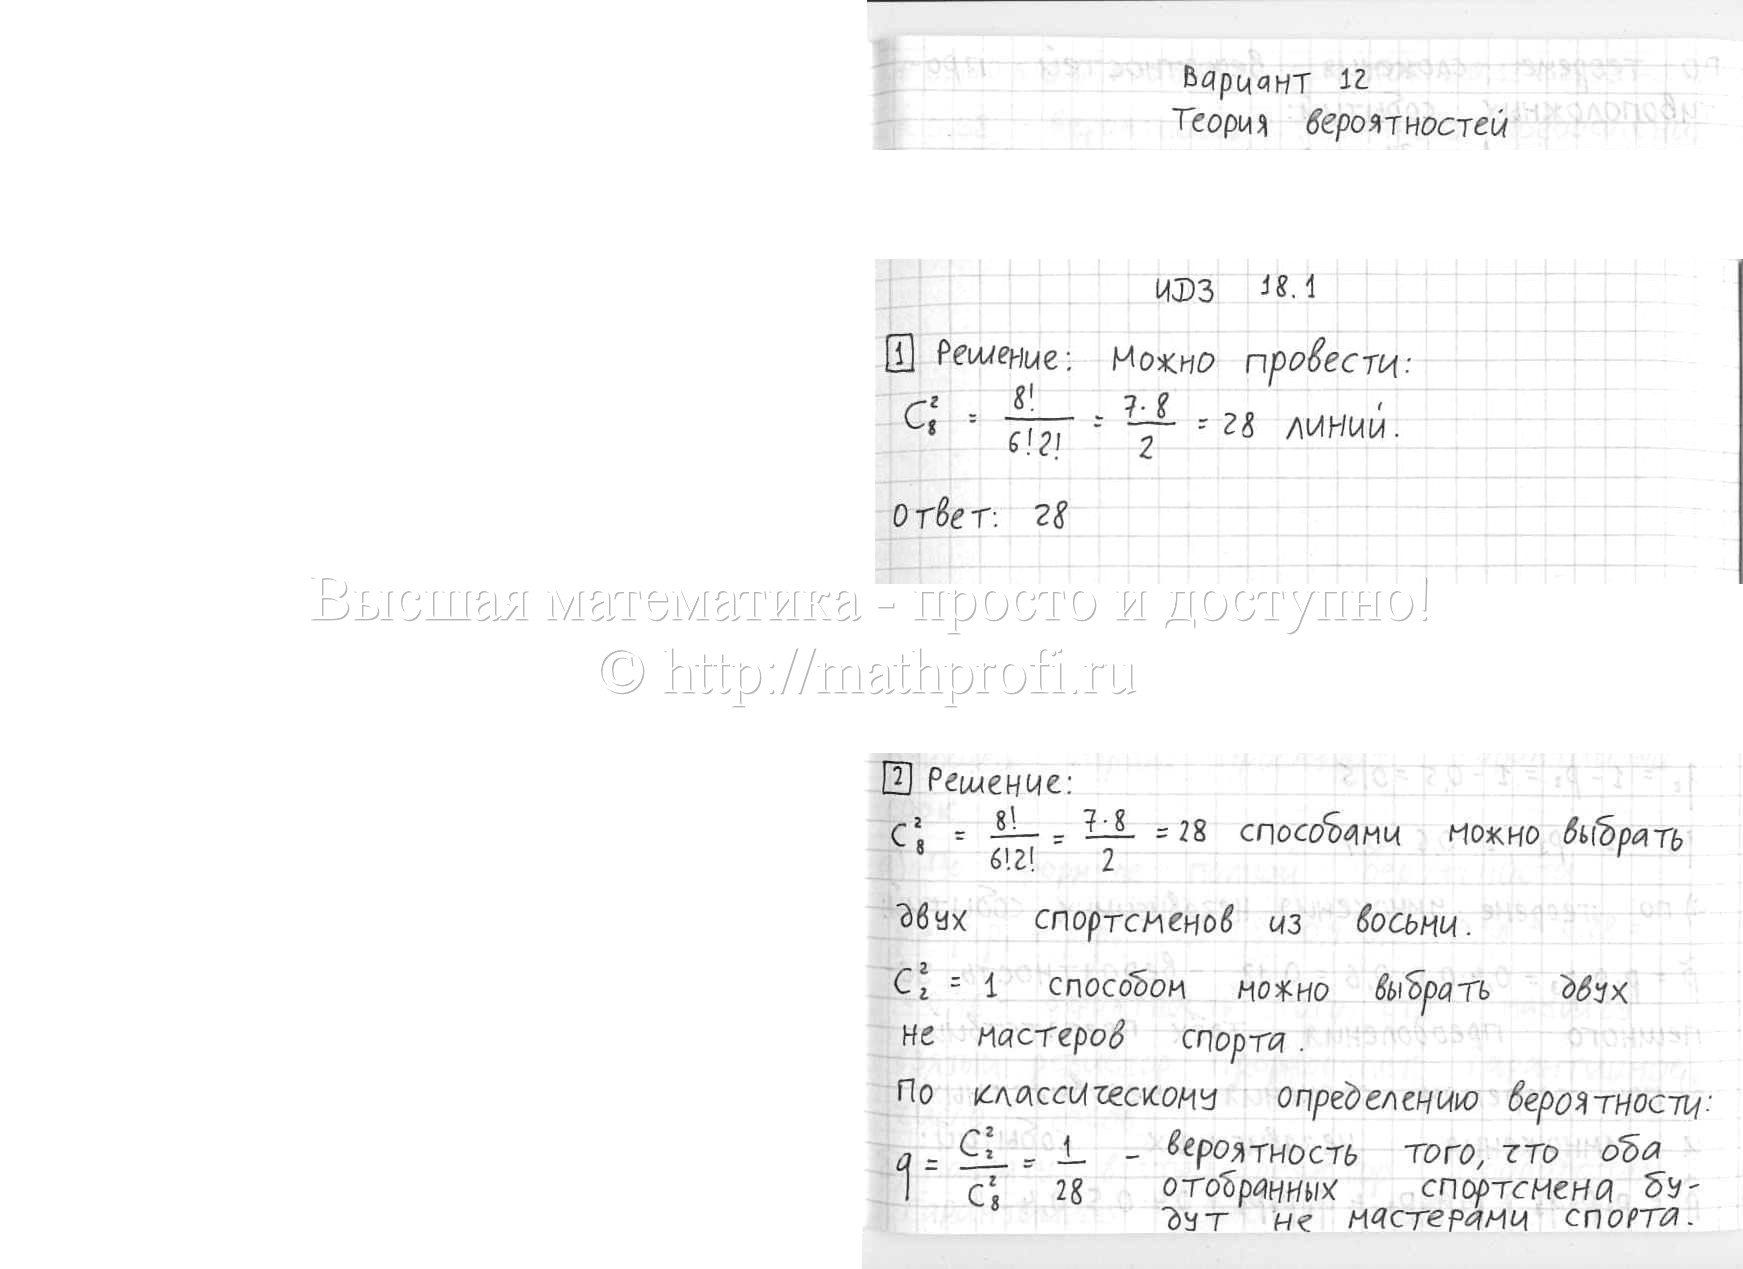 Вариант 12
Теория вероятностей
ИДЗ 18.1
1 Решение: Можно провести:
C₈² = 8! / 6!2! = 7·8 / 2 = 28 линий.
Ответ: 28
Высшая математика - просто и доступно!
© http://mathprofi.ru
2 Решение:
C₈² = 8! / 6!2! = 7·8 / 2 = 28 способами можно выбрать
двух спортсменов из восьми.
C₂² = 1 способом можно выбрать двух
не мастеров спорта.
По классическому определению вероятности:
q = C₂² / C₈² = 1 / 28 - вероятность того, что оба
отобранных спортсмена бу-
дут не мастерами спорта.